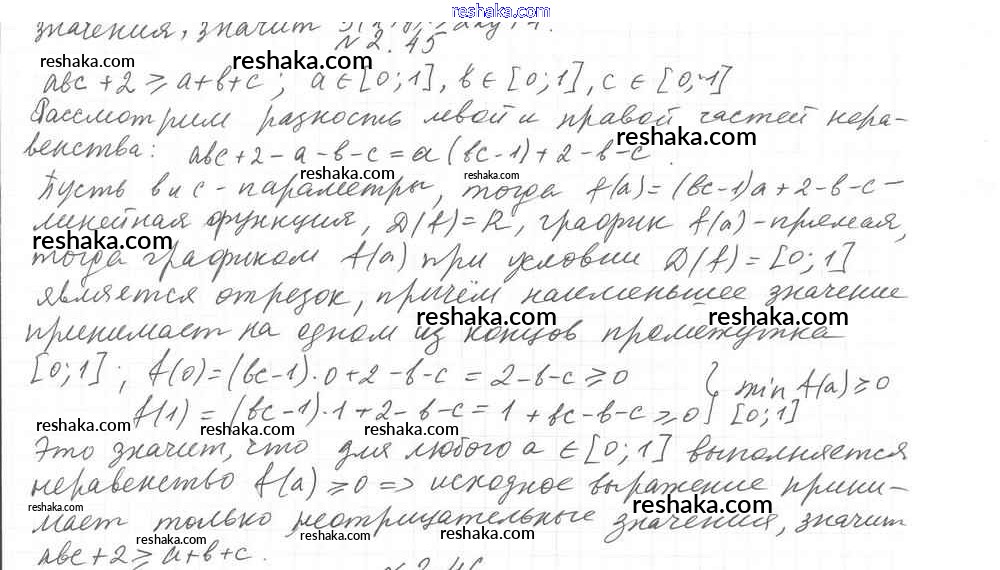 reshaka.com
значения, значит
N 2.45
reshaka.com reshaka.com
abc + 2 ≥ a+b+c; a ∈ [0;1], b ∈ [0;1], c ∈ [0;1]
Рассмотрим разность левой и правой частей нера-
reshaka.com
венства: abc+2-a-b-c = a(bc-1)+2-b-c.
reshaka.com reshaka.com
Пусть b и c - параметры, тогда f(a)=(bc-1)a+2-b-c -
линейная функция, D(f)=R, график f(a) - прямая,
reshaka.com
тогда графиком f(a) при условии D(f)=[0;1]
является отрезок, причём наименьшее значение
reshaka.com reshaka.com
принимает на одном из концов промежутка
[0;1]; f(0)=(bc-1)·0+2-b-c = 2-b-c ≥ 0 } min f(a) ≥ 0
f(1) = (bc-1)·1+2-b-c = 1+bc-b-c ≥ 0 } [0;1]
reshaka.com reshaka.com reshaka.com
Это значит, что для любого a ∈ [0;1] выполняется
неравенство f(a) ≥ 0 => исходное выражение прини-
reshaka.com reshaka.com
мает только неотрицательные значения, значит
reshaka.com reshaka.com reshaka.com
abc+2 ≥ a+b+c.
reshaka.com